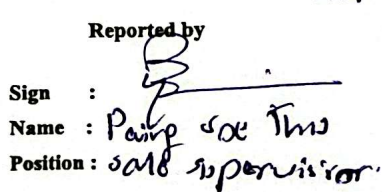 Reported by
Sign :
Name : Paing soe Thu
Position : sale supervisor.